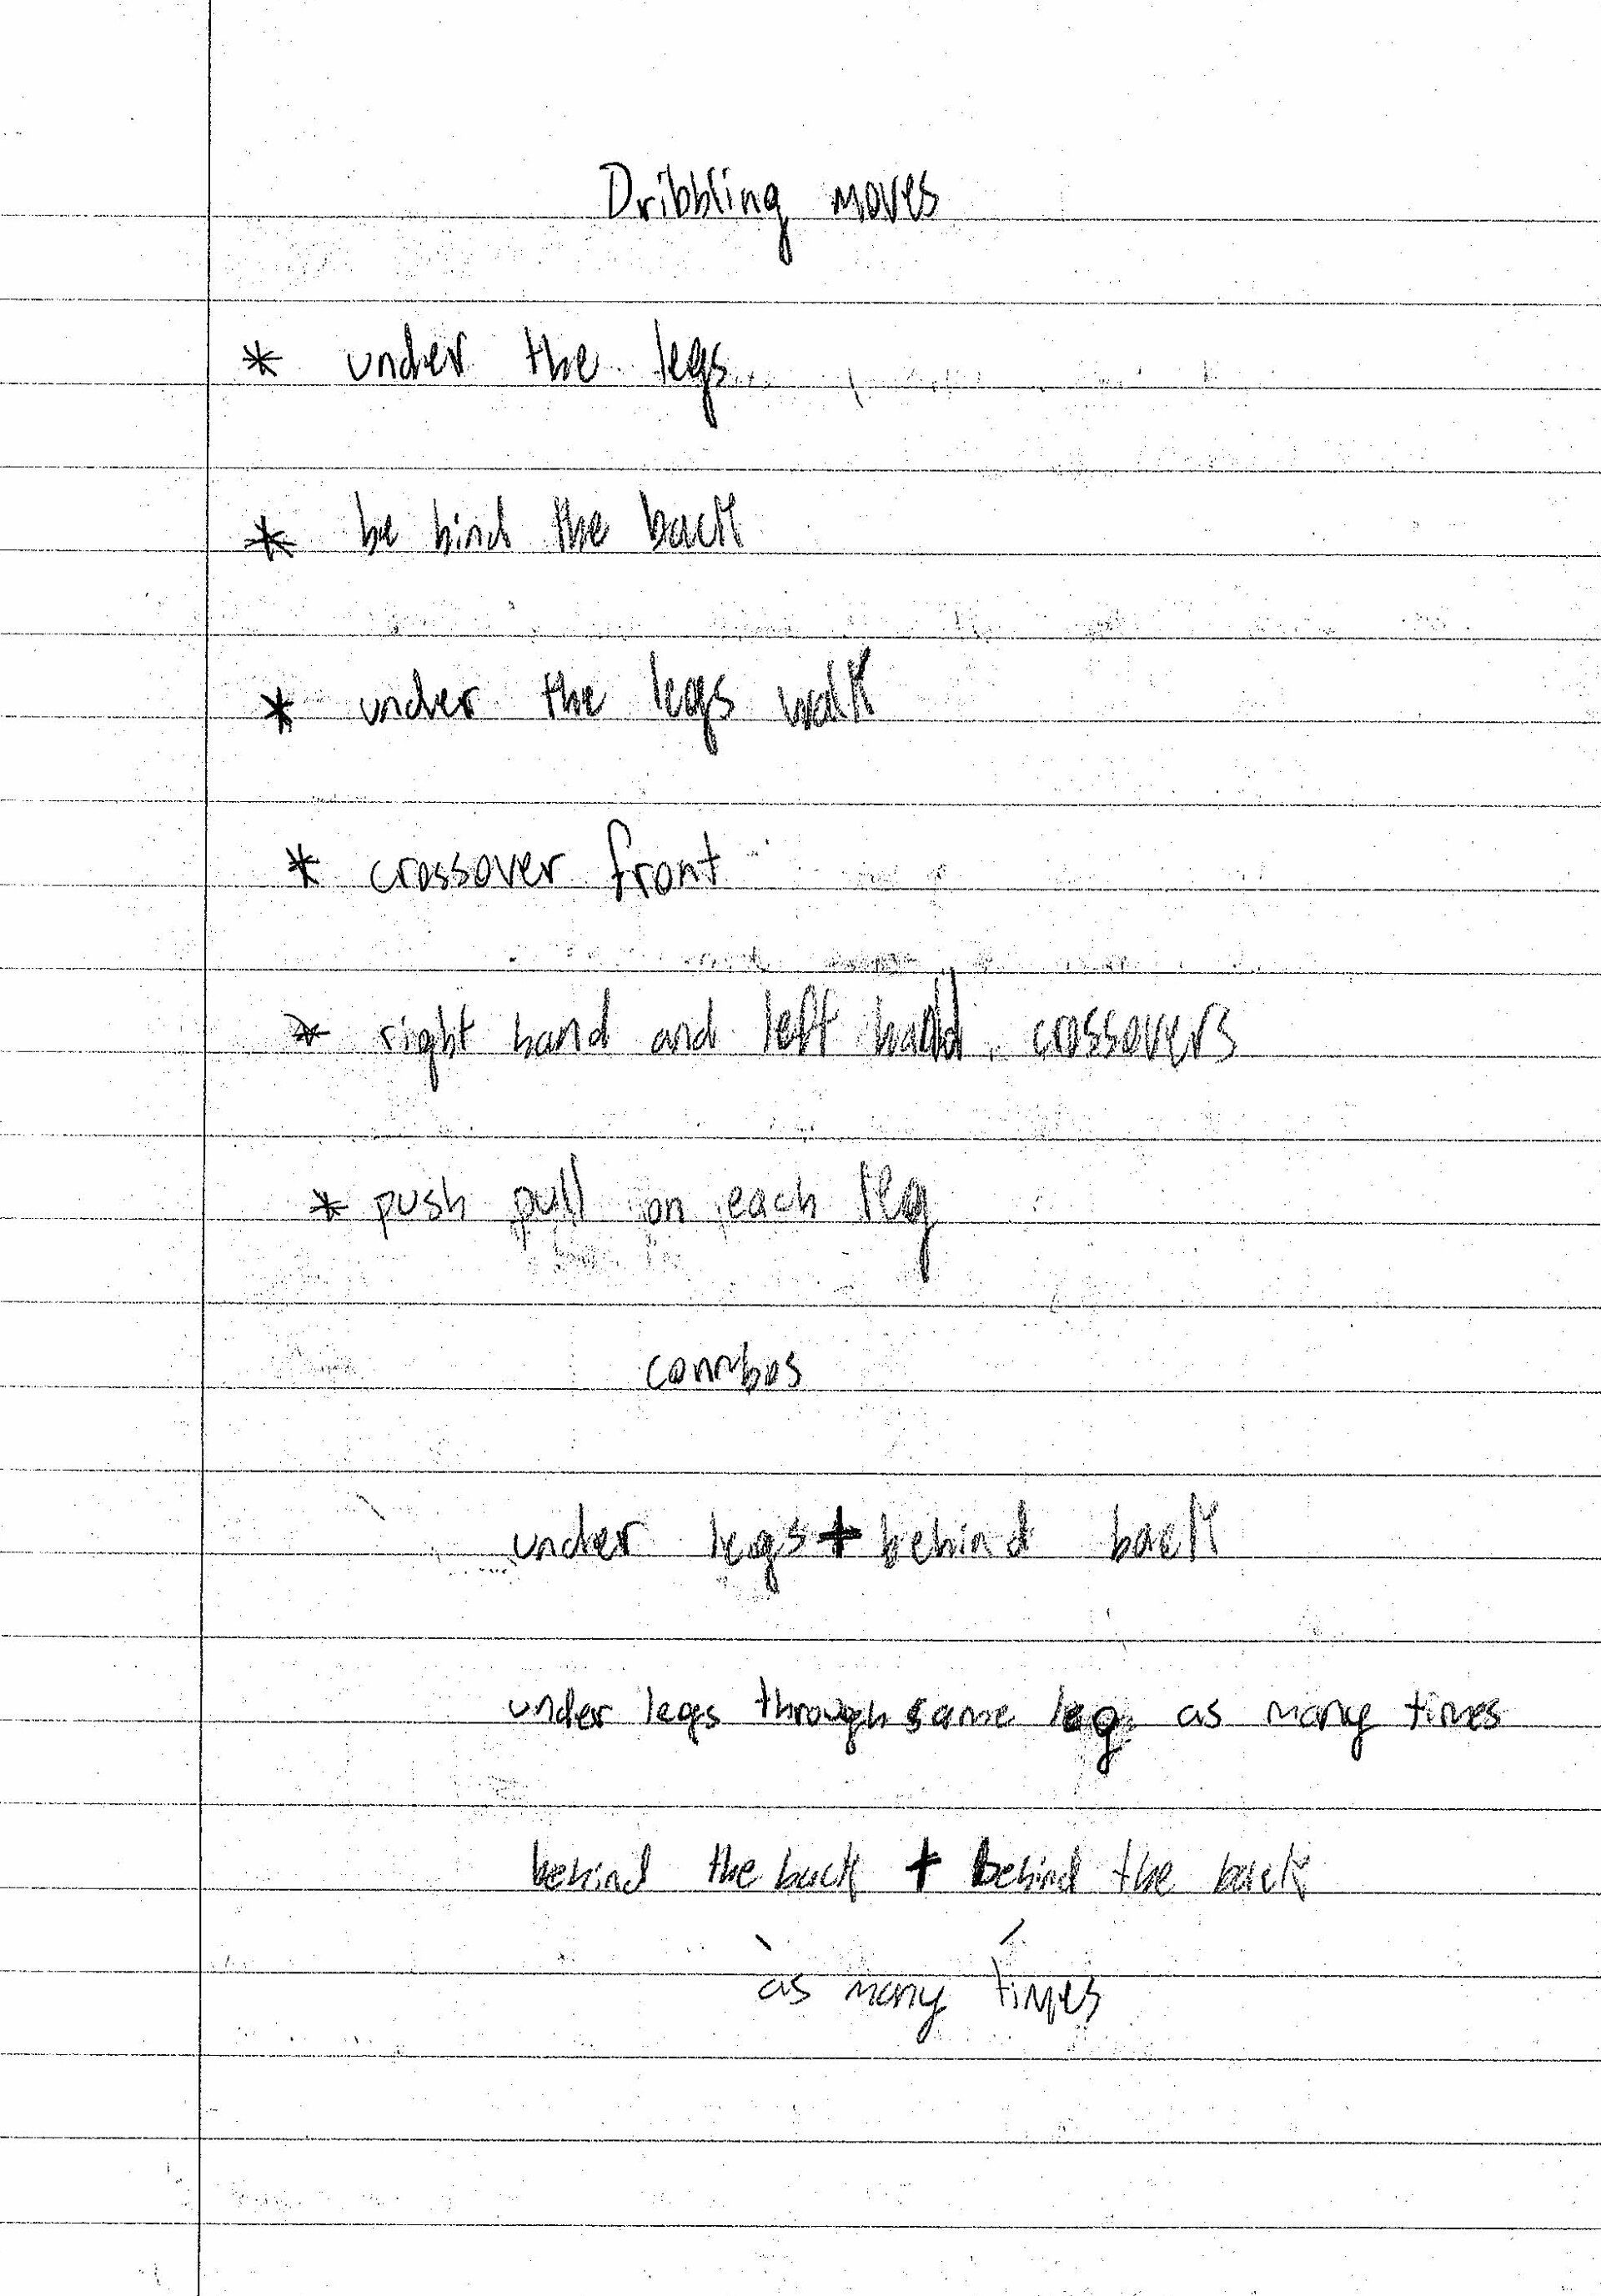 Dribbling moves
* under the legs
* be hind the back
* under the legs walk
* crossover front
* right hand and left hand crossovers
* push pull on each leg
combos
under legs + behind back
under legs through same leg as many times
behind the back + behind the back
as many times